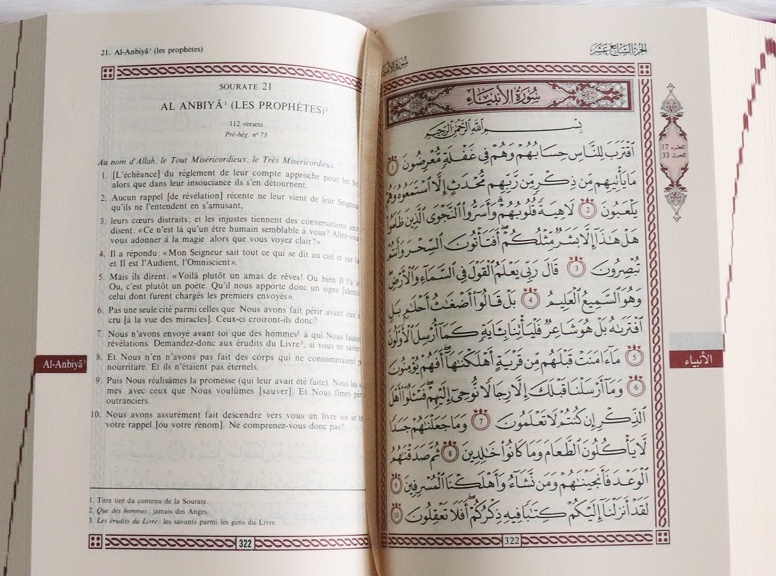 21. Al-Anbiyâ' (les prophètes)
SOURATE 21
AL ANBIYÂ' (LES PROPHÈTES)¹
112 versets
Pré-hég. n° 73
Au nom d'Allah, le Tout Miséricordieux, le Très Miséricordieux.
1. [L'échéance] du règlement de leur compte approche pour les
alors que dans leur insouciance ils s'en détournent.
2. Aucun rappel [de révélation] récente ne leur vient de leur Seigneur
qu'ils ne l'entendent en s'amusant,
3. leurs cœurs distraits; et les injustes tiennent des conversations
disent: «Ce n'est là qu'un être humain semblable à vous? Allez-vous
vous adonner à la magie alors que vous voyez clair?»
4. Il a répondu: «Mon Seigneur sait tout ce qui se dit au ciel et sur
et Il est l'Audient, l'Omniscient».
5. Mais ils dirent: «Voilà plutôt un amas de rêves! Ou bien Il l'a
Ou, c'est plutôt un poète. Qu'il nous apporte donc un signe
celui dont furent chargés les premiers envoyés».
6. Pas une seule cité parmi celles que Nous avons fait périr avant
cru [à la vue des miracles]. Ceux-ci croiront-ils donc?
7. Nous n'avons envoyé avant toi que des hommes² à qui Nous
révélations. Demandez-donc aux érudits du Livre³, si vous ne
8. Et Nous n'en n'avons pas fait des corps qui ne consommaient
nourriture. Et ils n'étaient pas éternels.
9. Puis Nous réalisâmes la promesse (qui leur avait été faite). Nous les
mes avec ceux que Nous voulûmes [sauver]. Et Nous fîmes
outranciers.
10. Nous avons assurément fait descendre vers vous un livre où se
votre rappel [ou votre renom]. Ne comprenez-vous donc pas?
1. Titre tiré du contenu de la Sourate.
2. Que des hommes: jamais des Anges.
3. Les érudits du Livre: les savants parmi les gens du Livre.
322
Al-Anbiyâ'
الجزء السابع عشر
سُورَةُ الأَنْبِيَاءِ
بِسْمِ اللَّهِ الرَّحْمَٰنِ الرَّحِيمِ
اقْتَرَبَ لِلنَّاسِ حِسَابُهُمْ وَهُمْ فِي غَفْلَةٍ مُعْرِضُونَ ١
مَا يَأْتِيهِم مِّن ذِكْرٍ مِّن رَّبِّهِم مُّحْدَثٍ إِلَّا اسْتَمَعُوهُ وَهُمْ
يَلْعَبُونَ ٢ لَاهِيَةً قُلُوبُهُمْ وَأَسَرُّوا النَّجْوَى الَّذِينَ ظَلَمُوا
هَلْ هَٰذَا إِلَّا بَشَرٌ مِّثْلُكُمْ أَفَتَأْتُونَ السِّحْرَ وَأَنتُمْ
تُبْصِرُونَ ٣ قَالَ رَبِّي يَعْلَمُ الْقَوْلَ فِي السَّمَاءِ وَالْأَرْضِ
وَهُوَ السَّمِيعُ الْعَلِيمُ ٤ بَلْ قَالُوا أَضْغَاثُ أَحْلَامٍ بَلِ
افْتَرَاهُ بَلْ هُوَ شَاعِرٌ فَلْيَأْتِنَا بِآيَةٍ كَمَا أُرْسِلَ الْأَوَّلُونَ
٥ مَا آمَنَتْ قَبْلَهُم مِّن قَرْيَةٍ أَهْلَكْنَاهَا أَفَهُمْ يُؤْمِنُونَ
٦ وَمَا أَرْسَلْنَا قَبْلَكَ إِلَّا رِجَالًا نُّوحِي إِلَيْهِمْ فَسْئَلُوا أَهْلَ
الذِّكْرِ إِن كُنتُمْ لَا تَعْلَمُونَ ٧ وَمَا جَعَلْنَاهُمْ جَسَدًا
لَّا يَأْكُلُونَ الطَّعَامَ وَمَا كَانُوا خَالِدِينَ ٨ ثُمَّ صَدَقْنَاهُمُ
الْوَعْدَ فَأَنجَيْنَاهُمْ وَمَن نَّشَاءُ وَأَهْلَكْنَا الْمُسْرِفِينَ ٩
لَقَدْ أَنزَلْنَا إِلَيْكُمْ كِتَابًا فِيهِ ذِكْرُكُمْ أَفَلَا تَعْقِلُونَ ١٠
322
الجزء 17
الحزب 33
الأنبياء